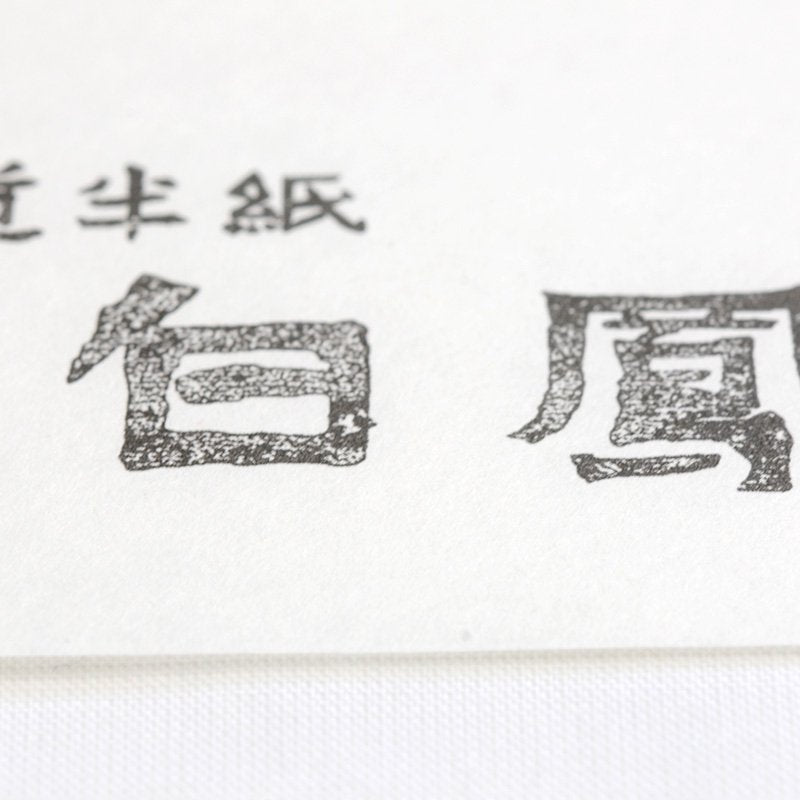 半紙
白鳳